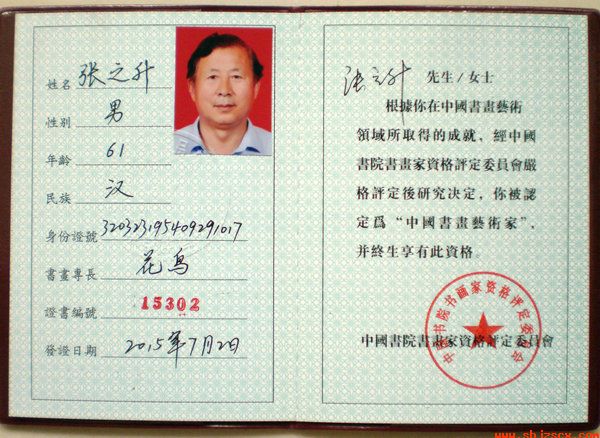 姓名 张之升
性别 男
年龄 61
民族 汉
身份證號 320323195409291017
書畫專長 花鸟
證書編號 15302
發證日期 2015年7月2日
张之升 先生/女士
根據你在中國書畫藝術
領域所取得的成就，經中國
書院書畫家資格評定委員會嚴
格評定後研究决定，你被認
定爲“中國書畫藝術家”，
并終生享有此資格。
中國書院書畫家資格評定委員會
中国书院书画家资格评定委员会
www.shjzscx.com